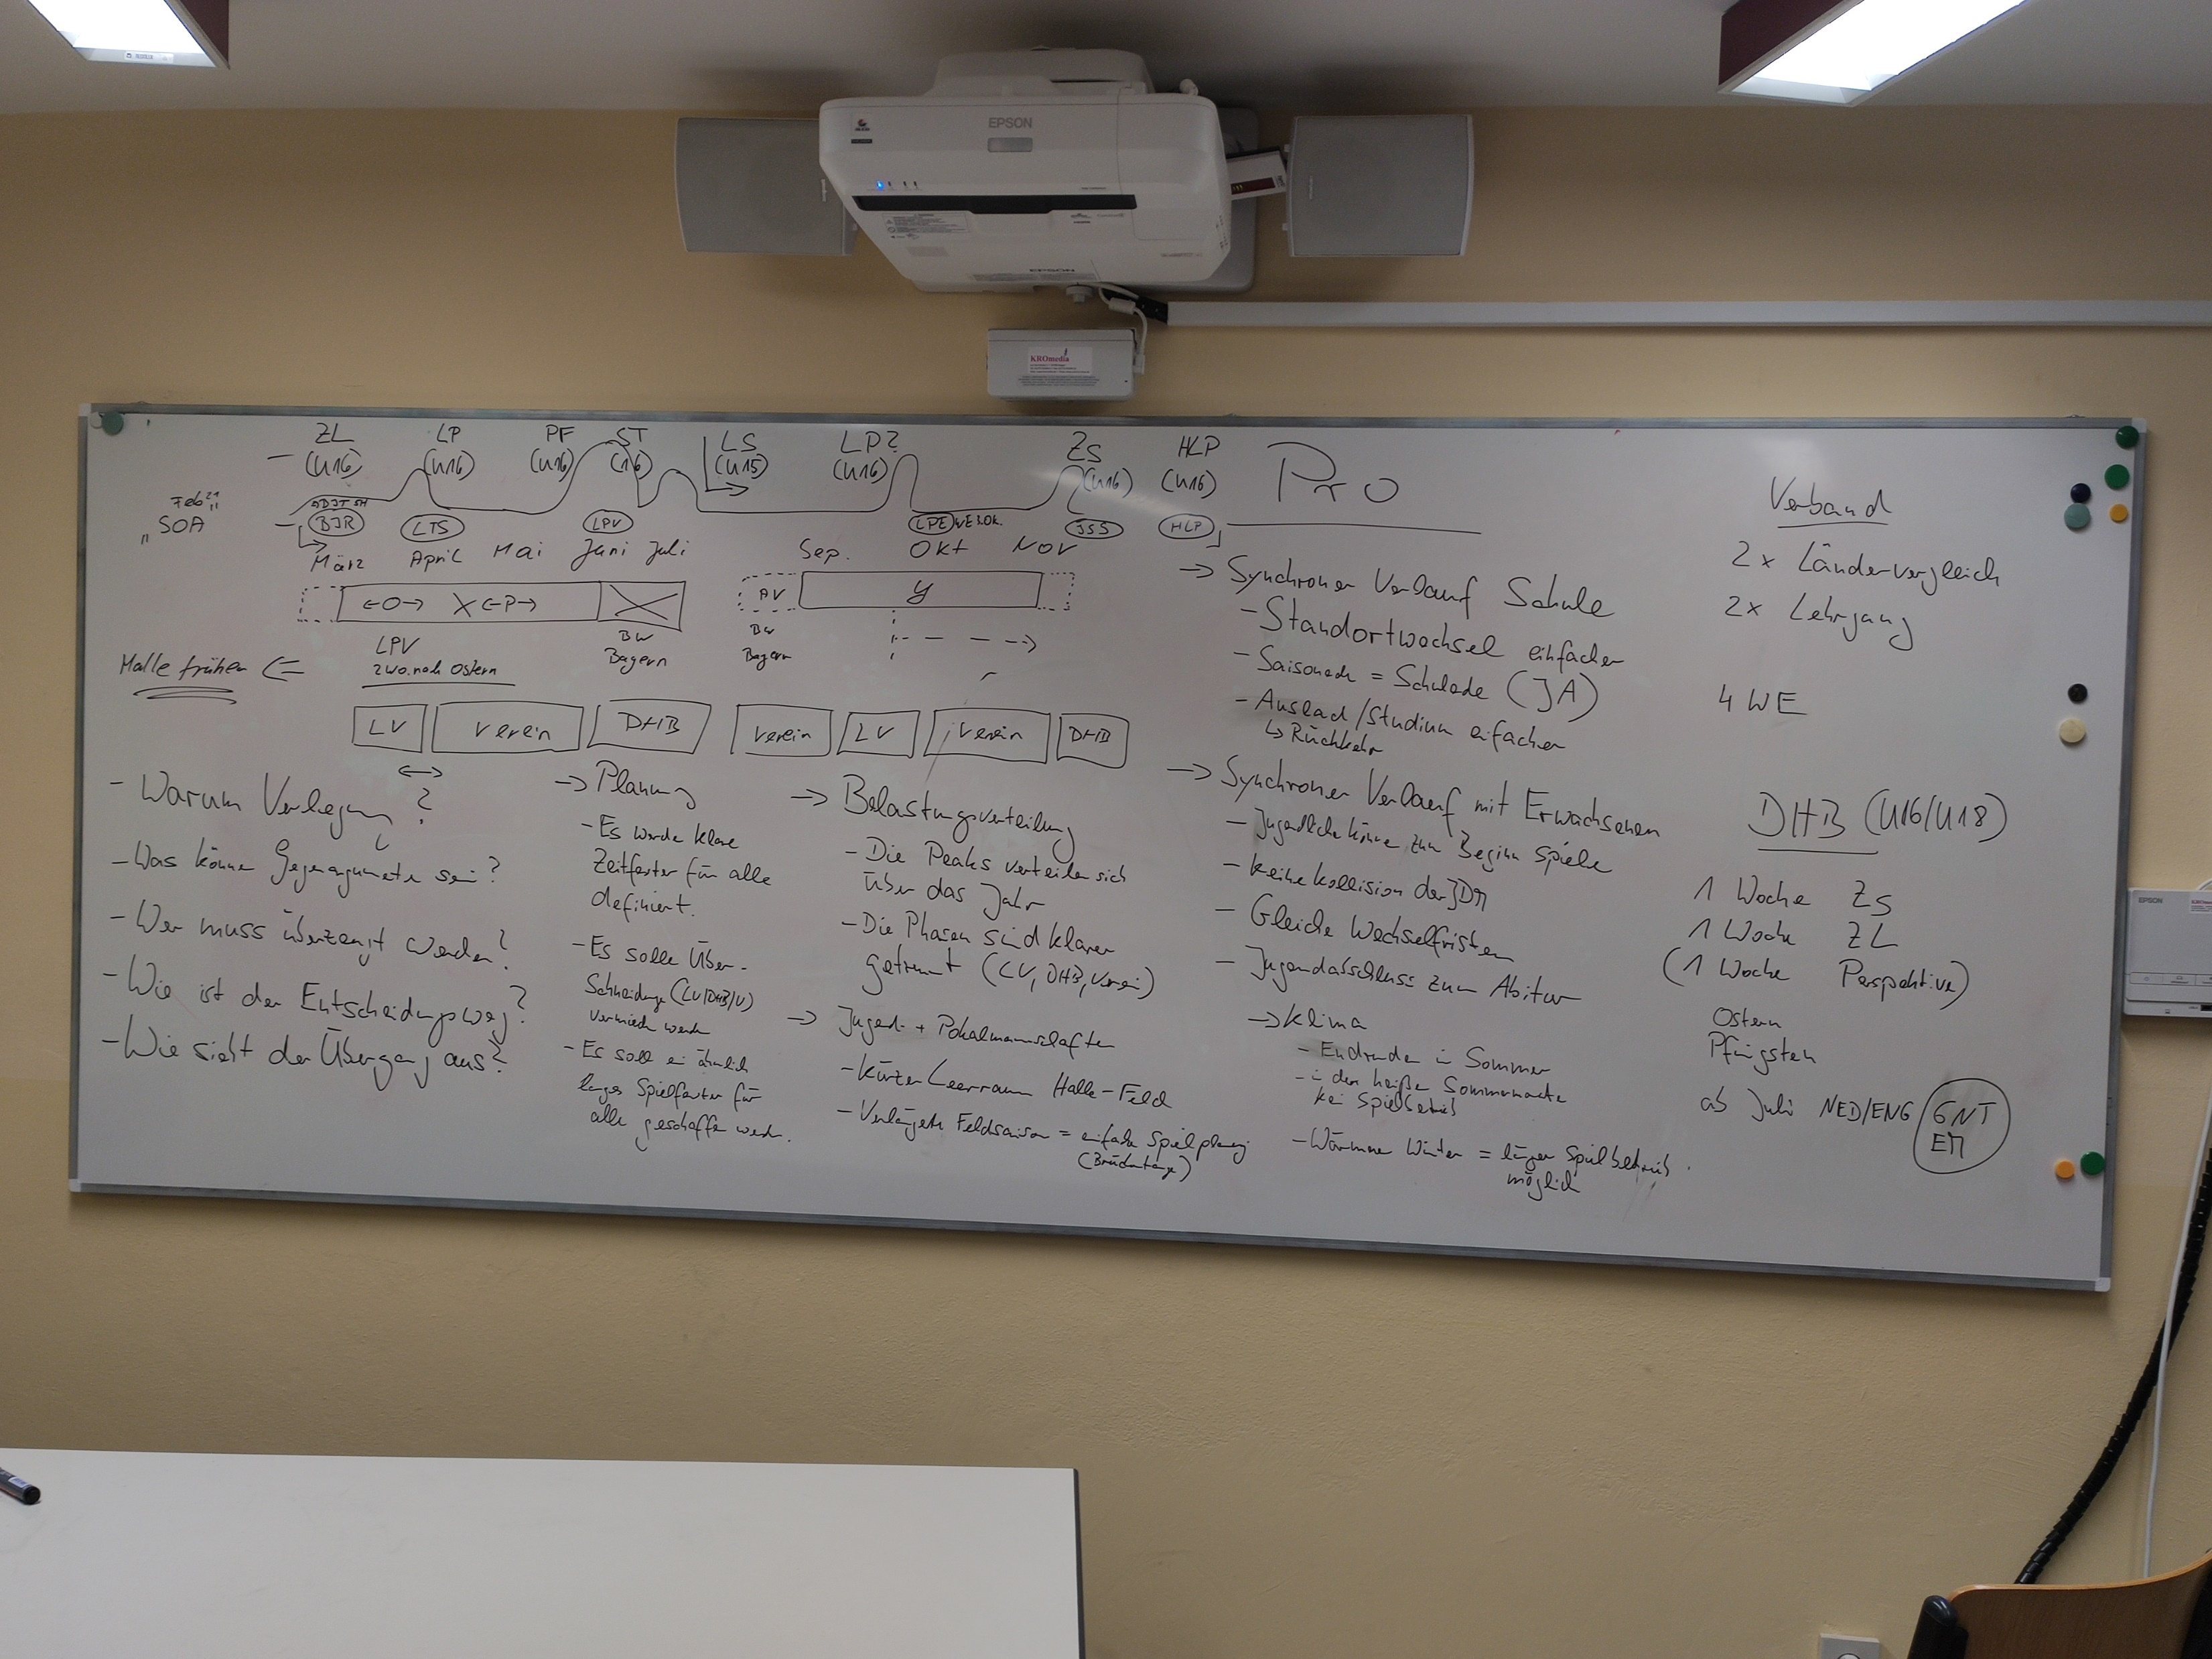 EPSON
EPSON
KROmedia
EPSON
ZL
(U16)
LP
(U16)
PF
(U16)
ST
(16)
LS
(U15)
LP?
(U16)
ZS
(U16)
HLP
(U16)
Feb
"SOA"
BJR
LTS
LPV
LPE WE 3.Ok.
JSS
HLP
März April Mai Juni Juli
Sep. Okt Nov
←O→ X ←P→
AV
y
LPV
2 wo. nach Ostern
BW
Bayern
BW
Bayern
Halle früher ⇐
LV Verein DHB Verein LV Verein DHB
- Warum Verlegung?
- Was könne Gegenargumente sein?
- Wer muss überzeugt werden?
- Wie ist der Entscheidungsweg?
- Wie sieht der Übergang aus?
→ Planung
- Es werde klare
Zeitfenster für alle
definiert.
- Es solle Über-
Schneidunge (LV/DHB/V)
vermiede werde
- Es soll ein ähnlich
langes Spielfenster für
alle geschaffe werde.
→ Belastungsverteilung
- Die Peaks verteilen sich
über das Jahr
- Die Phasen sind klarer
getrennt (LV, DHB, Verein)
→ Jugend + Pokalmannschaften
- Kürzer Leerraum Halle-Feld
- Verlängerte Feldsaison = einfache Spielplanung
(Brückentage)
Pro
→ Synchroner Verlauf Schule
- Standortwechsel einfacher
- Saisonende = Schulende (JA)
- Ausland/Studium einfacher
↳ Rückkehr
→ Synchroner Verlauf mit Erwachsenen
- Jugendliche könne zum Beginn spiele
- keine Kollision der JDM
- Gleiche Wechselfristen
- Jugendabschluss zum Abitur
→ Klima
- Endrunden im Sommer
- in den heiße Sommermonate
kei Spielbetrieb
- Wärmere Winter = länger Spielbetrieb
möglich
Verband
2x Ländervergleich
2x Lehrgang
4 WE
DHB (U16/U18)
1 Woche ZS
1 Woche ZL
(1 Woche Perspektive)
Ostern
Pfingsten
ab Juli NED/ENG / 6NT
EM